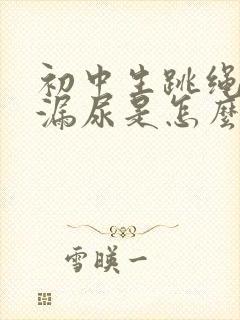 初中生跳绳
漏尿是怎麼
雪暎一